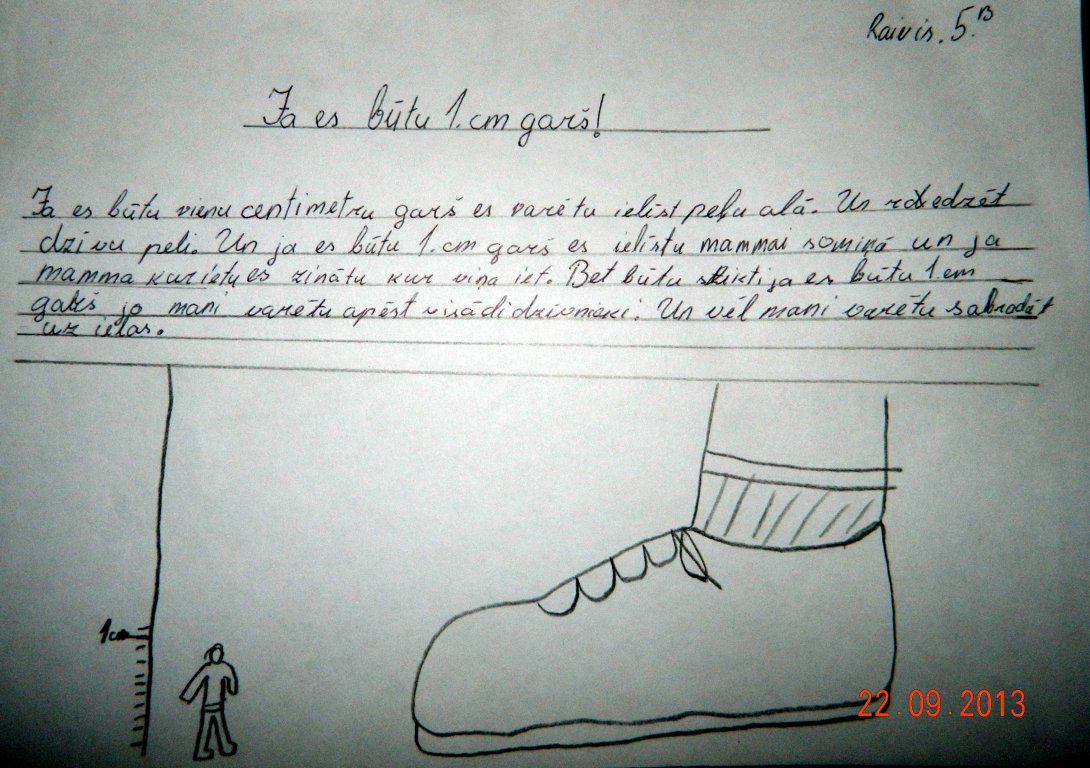 Raivis. 5.B
Ja es būtu 1.cm garš!
Ja es būtu vienu centimetru garš es varētu ielīst peļu alā. Un redzēt
dzīvu peli. Un ja es būtu 1.cm garš es ielīstu mammai somiņā un ja
mamma kur ietu es zinātu kur viņa iet. Bet būtu slikti ja es būtu 1 cm
garš jo mani varētu apēst visādi dzīvnieki. Un vēl mani varētu sabradāt
uz ielas.
1cm
22.09.2013